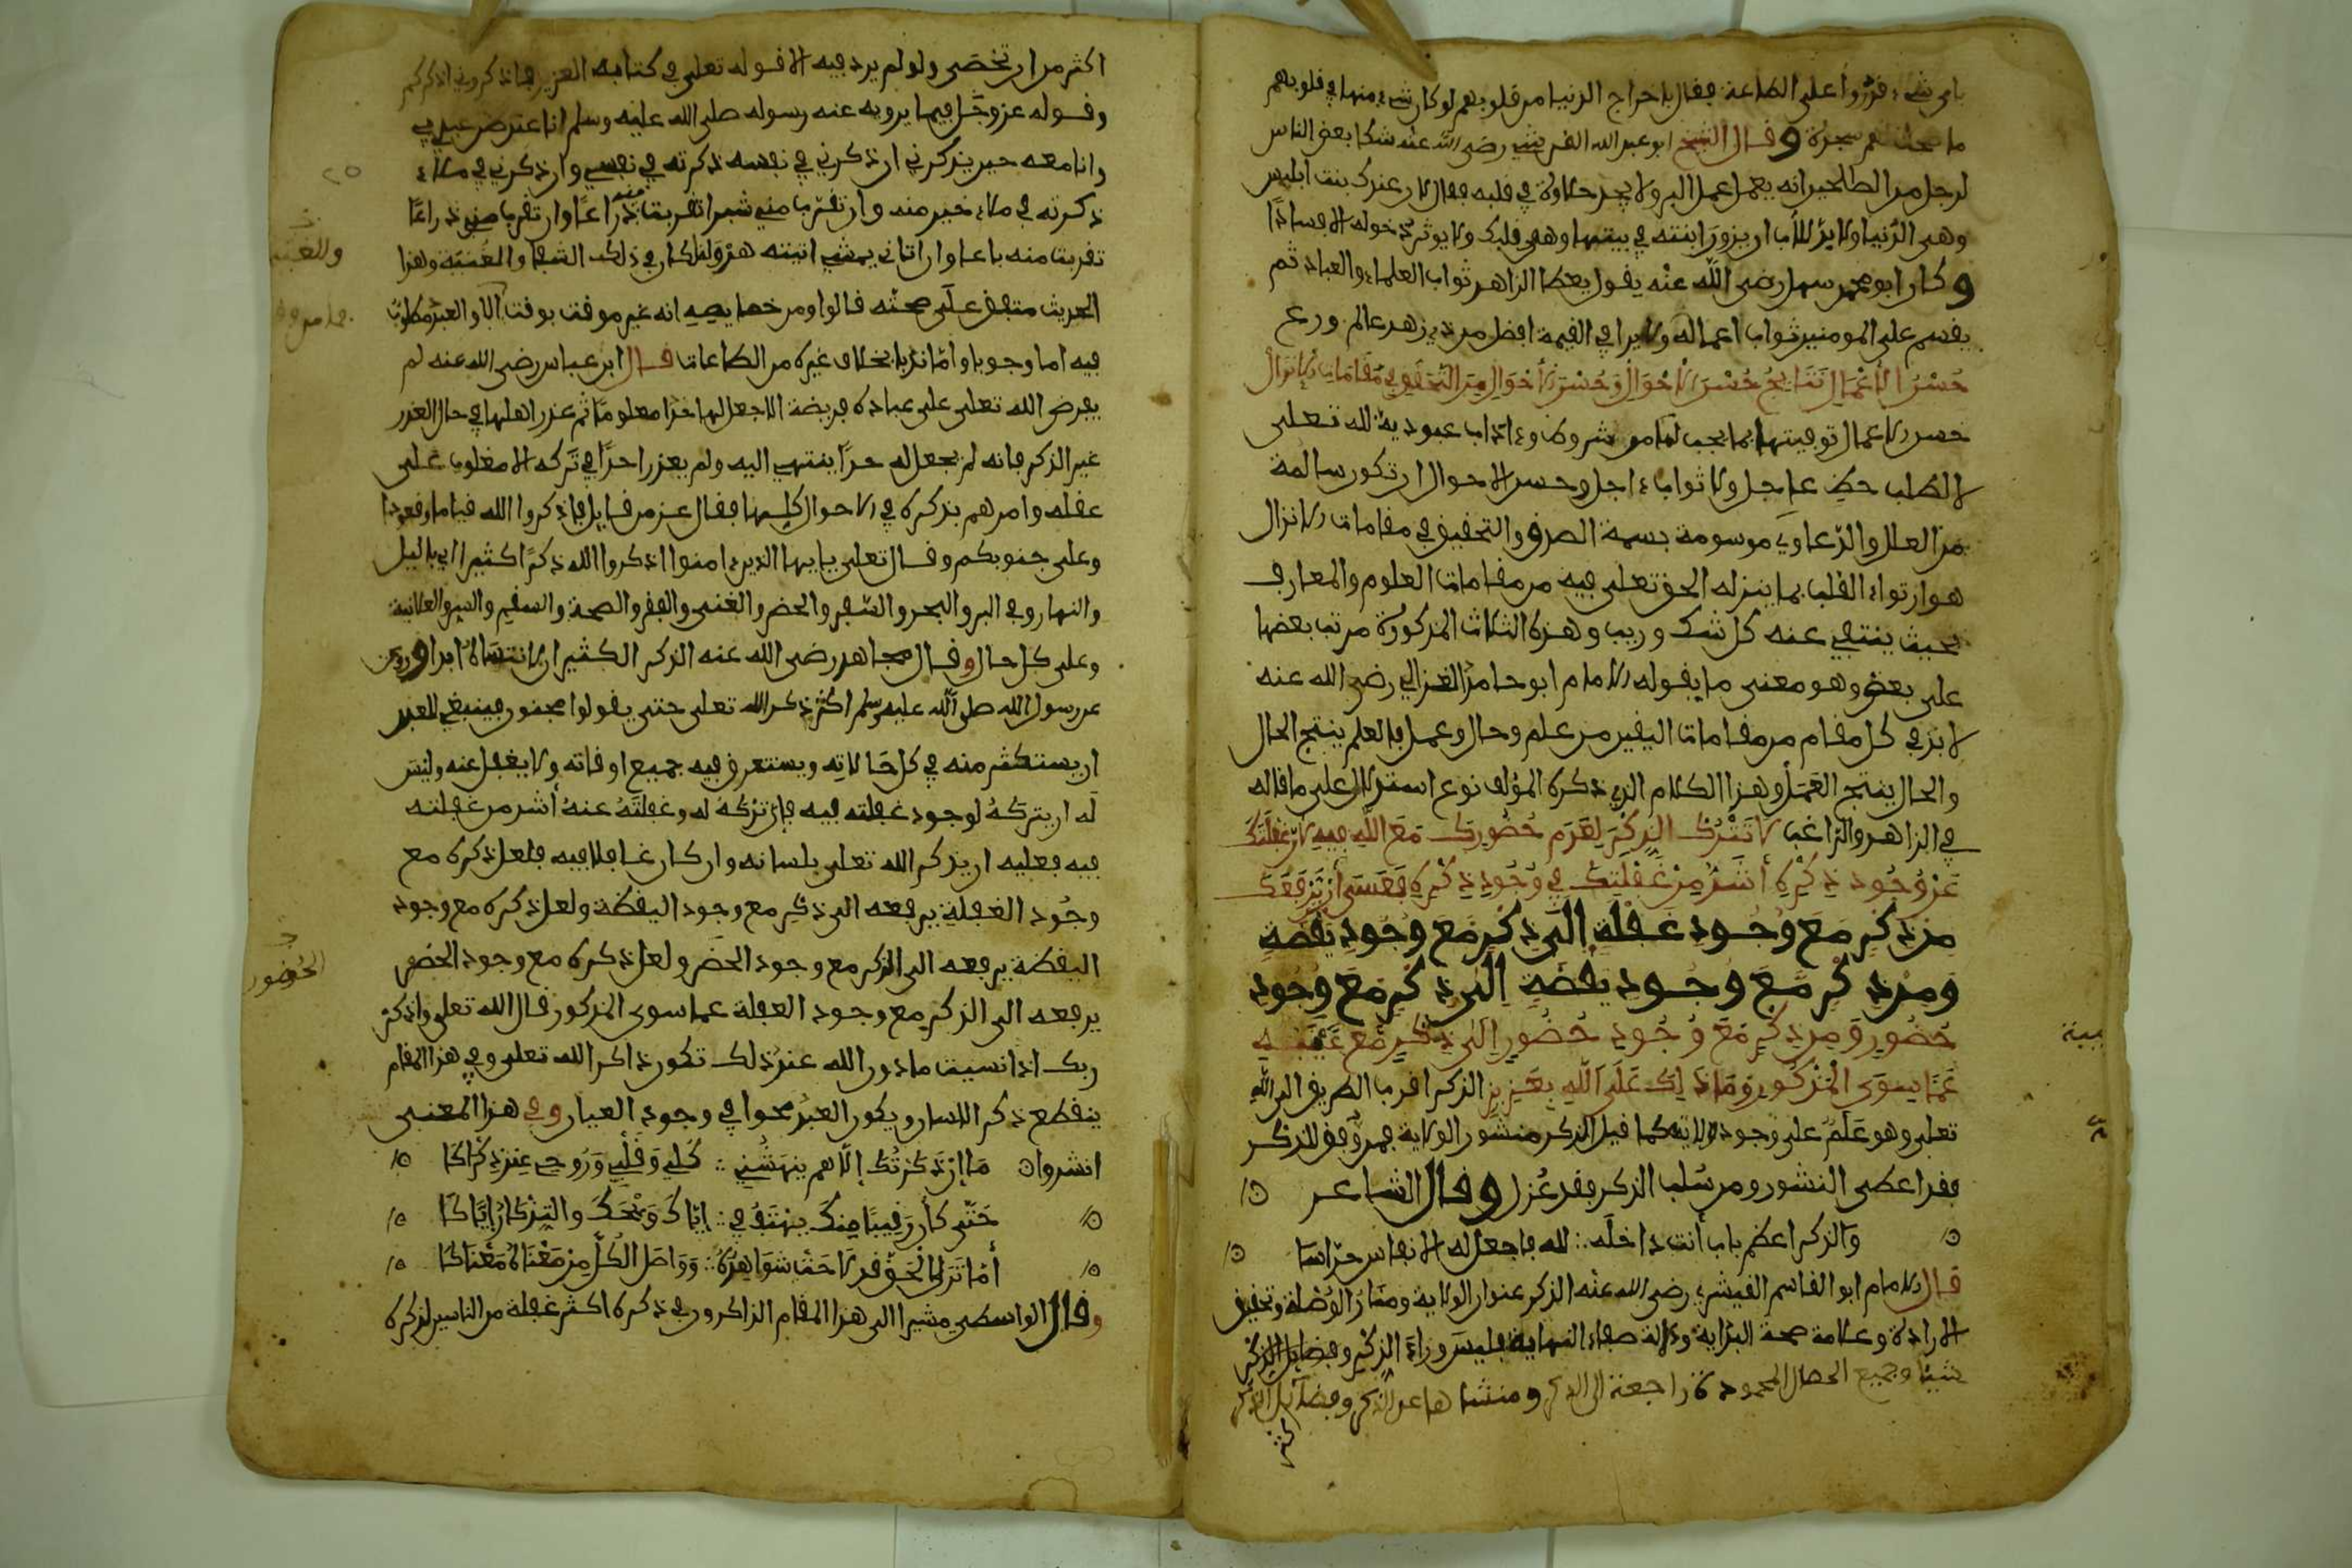 باي شيء قدروا على الطاعة فقال باخراج الدنيا من قلوبهم لو كان شيء منها في قلوبهم
ما صحت لهم سجدة وقال الشيخ ابو عبد الله القرشي رضي الله عنه شكا بعض الناس
لرجل من الصالحين انه يعمل عمل البر ولا يجد حلاوة في قلبه فقال لان عندك بنت ابليس
وهي الدنيا ولا بد للاب ان يزور ابنته في بيتها وهي قلبك ولا يوثر دخوله الا فسادا
وكان ابو محمد سهل رضي الله عنه يقول يعطا الزاهد ثواب العلماء والعباد ثم
يقسم على المومنين ثواب اعماله ولا يرا في القيمة افضل من ذي زهد عالم ورع
حُسْنُ الأعْمَالِ نَتَايجُ حُسْنِ الأحْوَالِ وَحُسْنُ الأحْوَالِ مِنَ التَّحَقُّقِ في مَقَامَاتِ الإنزال
حسن الاعمال توفيتها بما يجب لها من شروط وءاداب عبودية لله تعلى
لا لطلب حظ عاجل ولا ثواب ءاجل وحسن الاحوال ان تكون سالمة
من العلل والدعاوي موسومة بسمة الصدق والتحقيق في مقامات الانزال
هو ارتواء القلب بما ينزله الحق تعلى فيه من مقامات العلوم والمعارف
بحيث ينتفي عنه كل شك وريب وهذه الثلاث المذكورة مرتب بعضها
على بعض وهو معنى ما يقوله الامام ابو حامد الغزالي رضي الله عنه
لا بد في كل مقام من مقامات اليقين من علم وحال وعمل فالعلم ينتج الحال
والحال ينتج العمل وهذا الكلام الذي ذكره المؤلف نوع استدلال على ما قاله
في الزاهد والراغب لا تَتْرُك الذِّكْرَ لِعَدَمِ حُضُورِكَ مَعَ اللَّهِ فِيهِ لأنّ غَفْلَتَكَ
عَنْ وُجُودِ ذِكْرِهِ أشَدُّ مِنْ غَفْلَتِكَ فِي وُجُودِ ذِكْرِهِ فَعَسَى أنْ يَرْفَعَكَ
مِن ذكْرٍ مَعَ وُجُودِ غَفْلَةٍ إلَى ذِكْرٍ مَعَ وُجُودِ يَقَظَةٍ
وَمِنْ ذِكْرٍ مَّعَ وُجُودِ يَقَظَةٍ إلَى ذِكْرٍ مَعَ وُجُودِ
حُضُورٍ وَمِن ذِكْرٍ مَعَ وُجُودِ حُضُورٍ إلَى ذِكْرٍ مَّعَ غَيْبَةٍ
عَمَّا سِوَى الْمَذْكُورِ وَمَا ذَلِكَ عَلَى اللَّهِ بِعَزِيزٍ الذكر اقرب الطريق الى الله
تعلى وهو عَلَمٌ على وجود ولايته كما قيل الذكر منشور الولاية فمن وُفِّق للذكر
فقد اعطى المنشور ومن سُلب الذكر فقد عُزل وقال الشاعر
والذكر اعظم باب أنت داخله ∴ لله فاجعل له الانفاس حرّاسا
قال الامام ابو القاسم القشيري رضي الله عنه الذكر عنوان الولاية ومنار الوُصْلة وتحقيق
الارادة وعلامة صحة البداية ودلالة صفاء النهاية فليس وراء الذكر
شيئا وجميع الخصال المحمودة راجعة الى الذكر ومنشاها عن الذكر وفضايل الذكر
اكثر
اكثر من ان تحصى ولو لم يرد فيه الا قوله تعلى في كتابه العزيز فاذكروني اذكركم
وقوله عز وجل فيما يرويه عنه رسوله صلى الله عليه وسلم انا عند ظن عبدي بي
وانا معه حين يذكرني ان ذكرني في نفسه ذكرته في نفسي وان ذكرني في ملاء
ذكرته في ملاء خير منه وان تقرب مني شبرا تقربت منه ذراعًا وان تقرب مني ذراعًا
تقربت منه باعا وان اتاني يمشي اتيته هرولة لكان في ذلك الشفا والغنية وهذا
الحديث متفق على صحته قالوا ومن خصايصه انه غير موقت بوقت الا والعبد مطلوب
فيه اما وجوبا واما ندبا بخلاف غيره من الطاعات قال ابن عباس رضي الله عنه لم
يفرض الله تعلى على عباده فريضة الا جعل لها حدا معلومًا ثم عذر اهلها في حال العذر
غير الذكر فانه لم يجعل له حدًا ينتهي اليه ولم يعذر احدًا في تركه الا مغلوب على
عقله وامرهم بذكره في الاحوال كلها فقال عز من قايل فاذكروا الله قياما وقعودا
وعلى جنوبكم وقال تعلى يايها الذين ءامنوا اذكروا الله ذكرًا كثيرا اي باليل
والنهار وفي البر والبحر والسفر والحضر والغنى والفقر والصحة والسقم والسر والعلانية
وعلى كل حال وقال مجاهد رضي الله عنه الذكر الكثير ان لا تنساه ابدا وروي
عن رسول الله صلى الله عليه وسلم اكثر ذكر الله تعلى حتى يقولوا مجنون فينبغي للعبد
ان يستكثر منه في كل حَالاتِه ويستغرق فيه جميع اوقاته ولا يغفل عنه وليس
له ان يتركهُ لوجود غفلته فيه فإن تركهُ له وغفلتَهُ عنهُ أشد من غفلته
فيه فعليه ان يذكر الله تعلى بلسانه وان كان غافلا فيه فلعل ذكره مع
وجُود الغفلة يرفعه الى ذكرٍ مع وجود اليقظة ولعل ذكره مع وجود
اليقظة يرفعه الى الذكر مع وجود الحضر ولعل ذكره مع وجود الحضور
يرفعه الى الذكر مع وجود الغفلة عما سوى المذكور قال الله تعلى واذكر
ربك اذا نسيت ما دون الله عند ذلك تكون ذاكر الله تعلى وفي هذا المقام
ينقطع ذكر اللسان ويكون العبد محوا في وجود العيان وفي هذا المعنى
انشدوا مَا إن ذَكرْتُكَ إلّا هم ينهشُني ∴ كُلي وَقَلْبي وَرُوحي عِنْد ذِكْراكَا
حَتّى كأن رَقِيبًا مِنكَ يهْتِفُ بي ∴ ايّاكَ وَيْحَكَ والتِّذْكارَ إيّاكَا
أمَا تَرَى الحَقَّ قد لَاحَتْ شَوَاهِدُهُ ∴ وَوَاصَلَ الكُلَّ مِنْ مَعْنَاهُ مَعْنَاكَا
وقال الواسطي مشيرا الى هذا المقام الذاكرون في ذكره اكثر غفلة من الناسين لذكره
والغنية
الحُضور